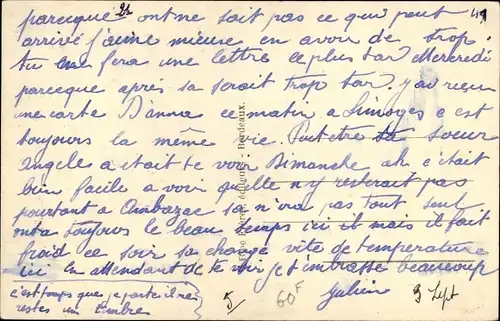 parceque ont ne sait pas ce qui peut
arrivé j'aime mieuse en avoir de trop.
tu me fera une lettre le plus tar Mercredi
parceque après sa serait trop tar. j'ai reçu
une carte D'anna ce matin a Limoges c est
toujours la même vie. Peut etre ta soeur
angèle a était te voir Dimanche ah c'était
bien facile a voir qu'elle n'y resterait pas
pourtant a Ambazac sa n'ira pas tout seul
ont a toujours le beau temps ici il mais il fait
froid ce soir sa change vite de temperature
ici En attendant de te voir je t'embrasse beaucoup
c'est temps que je parte il ne
restes un timbre
Julien
3 Sept
5/
60F
éditeurs, Bordeaux.